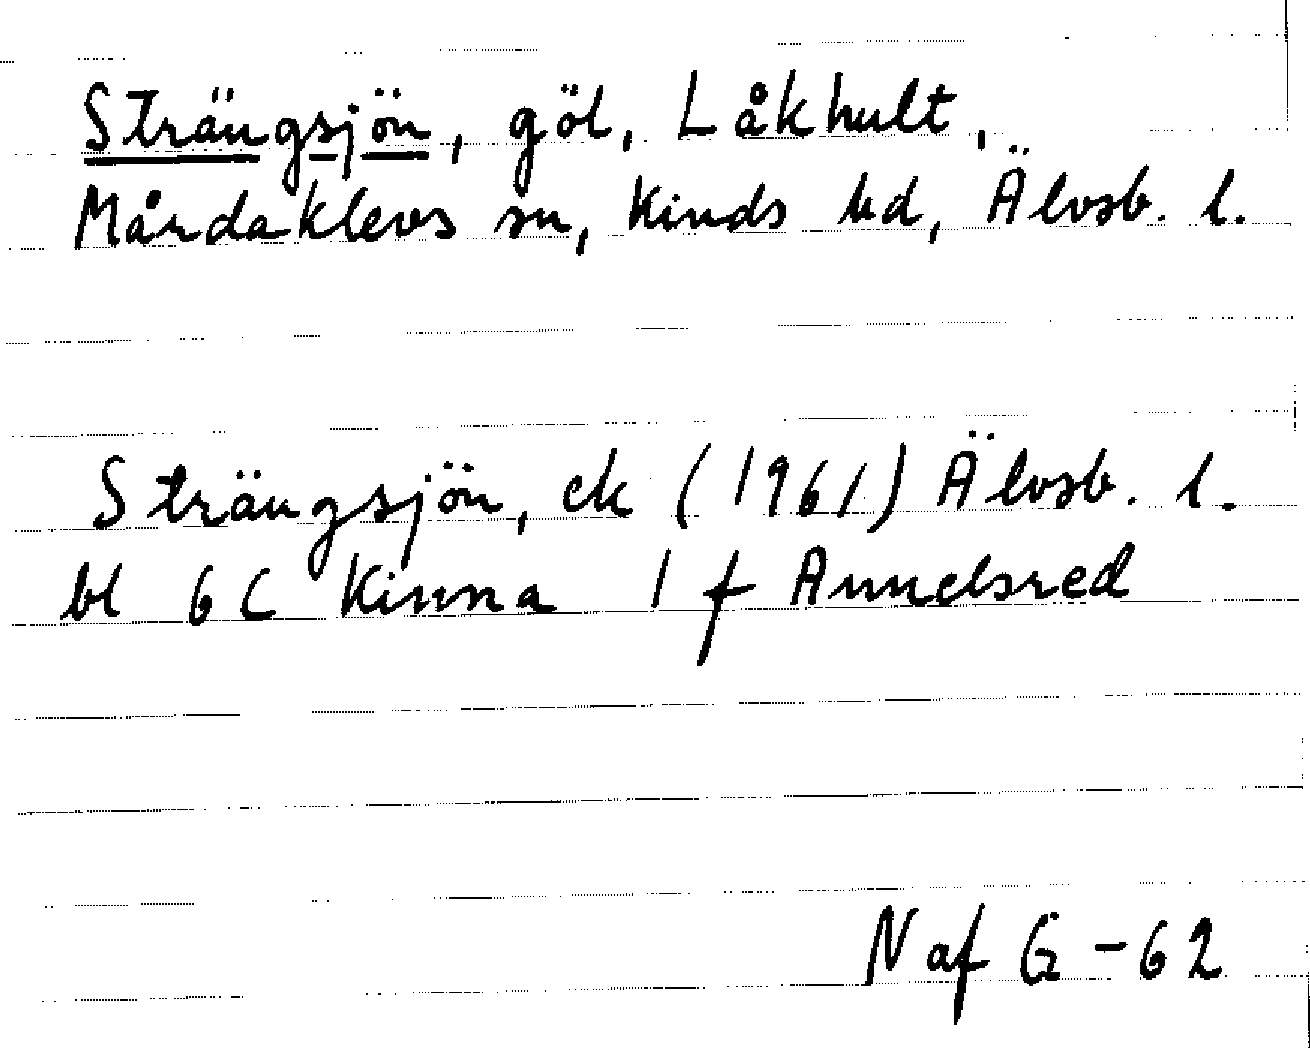 Strängsjön, göl, Låkhult,
Mårdaklevs sn, Kinds hd, Älvsb. l.
Strängsjön, ek (1961) Älvsb. l.
bl 6C Kinna 1 f Annelsred
Naf G-62